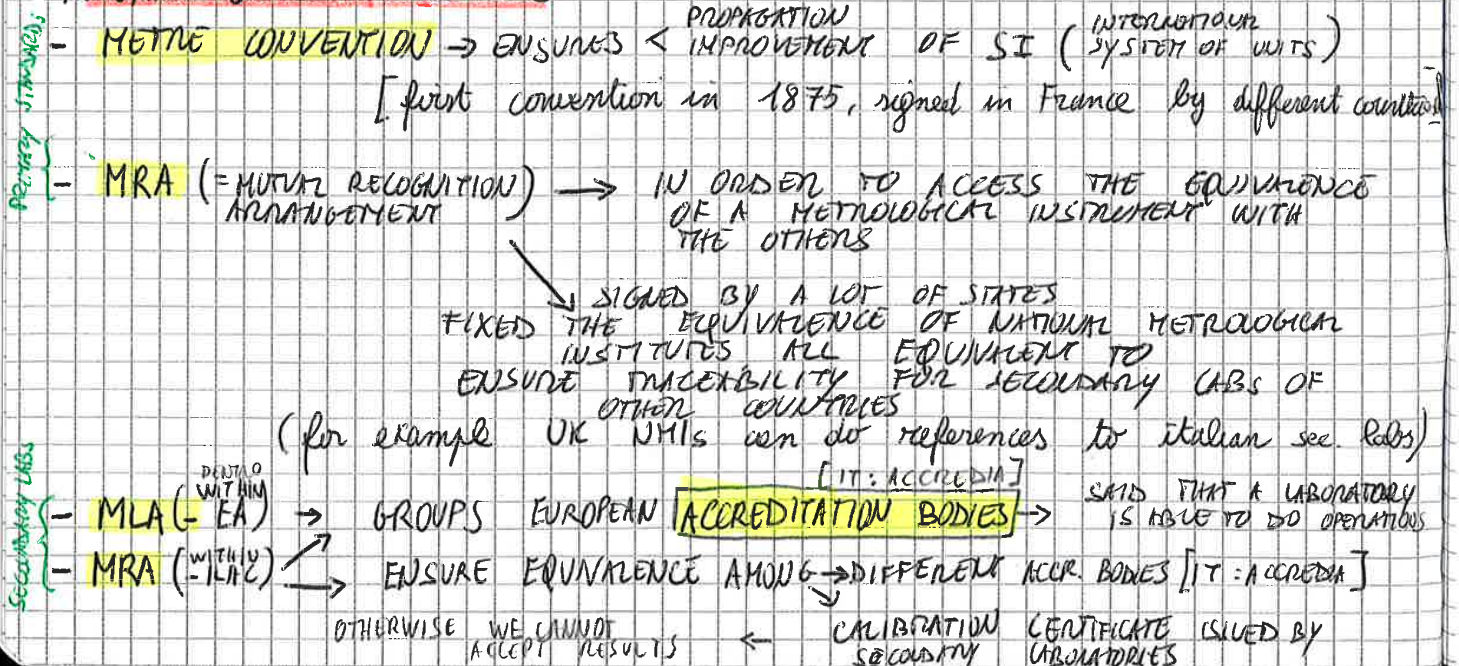 PRIMARY STANDARDS
- METRE CONVENTION → ENSURES < PROPAGATION
IMPROVEMENT OF SI (INTERNATIONAL
SYSTEM OF UNITS)
[first convention in 1875, signed in France by different countries]
- MRA (= MUTUAL RECOGNITION
ARRANGEMENT) → IN ORDER TO ACCESS THE EQUIVALENCE
OF A METROLOGICAL INSTRUMENT WITH
THE OTHERS
SIGNED BY A LOT OF STATES
FIXED THE EQUIVALENCE OF NATIONAL METROLOGICAL
INSTITUTES ALL EQUIVALENT TO
ENSURE TRACEABILITY FOR SECONDARY LABS OF
OTHER COUNTRIES
(for example UK NMIs can do references to italian sec. labs)
SECONDARY LABS
DENTRO
WITHIN
[IT: ACCREDIA]
- MLA (- EA) → GROUPS EUROPEAN ACCREDITATION BODIES → SAID THAT A LABORATORY
IS ABLE TO DO OPERATIONS
- MRA (WITHIN
- ILAC) → ENSURE EQUIVALENCE AMONG → DIFFERENT ACCR. BODIES [IT: ACCREDIA]
OTHERWISE WE CANNOT
ACCEPT RESULTS ← CALIBRATION CERTIFICATE ISSUED BY
SECONDARY LABORATORIES